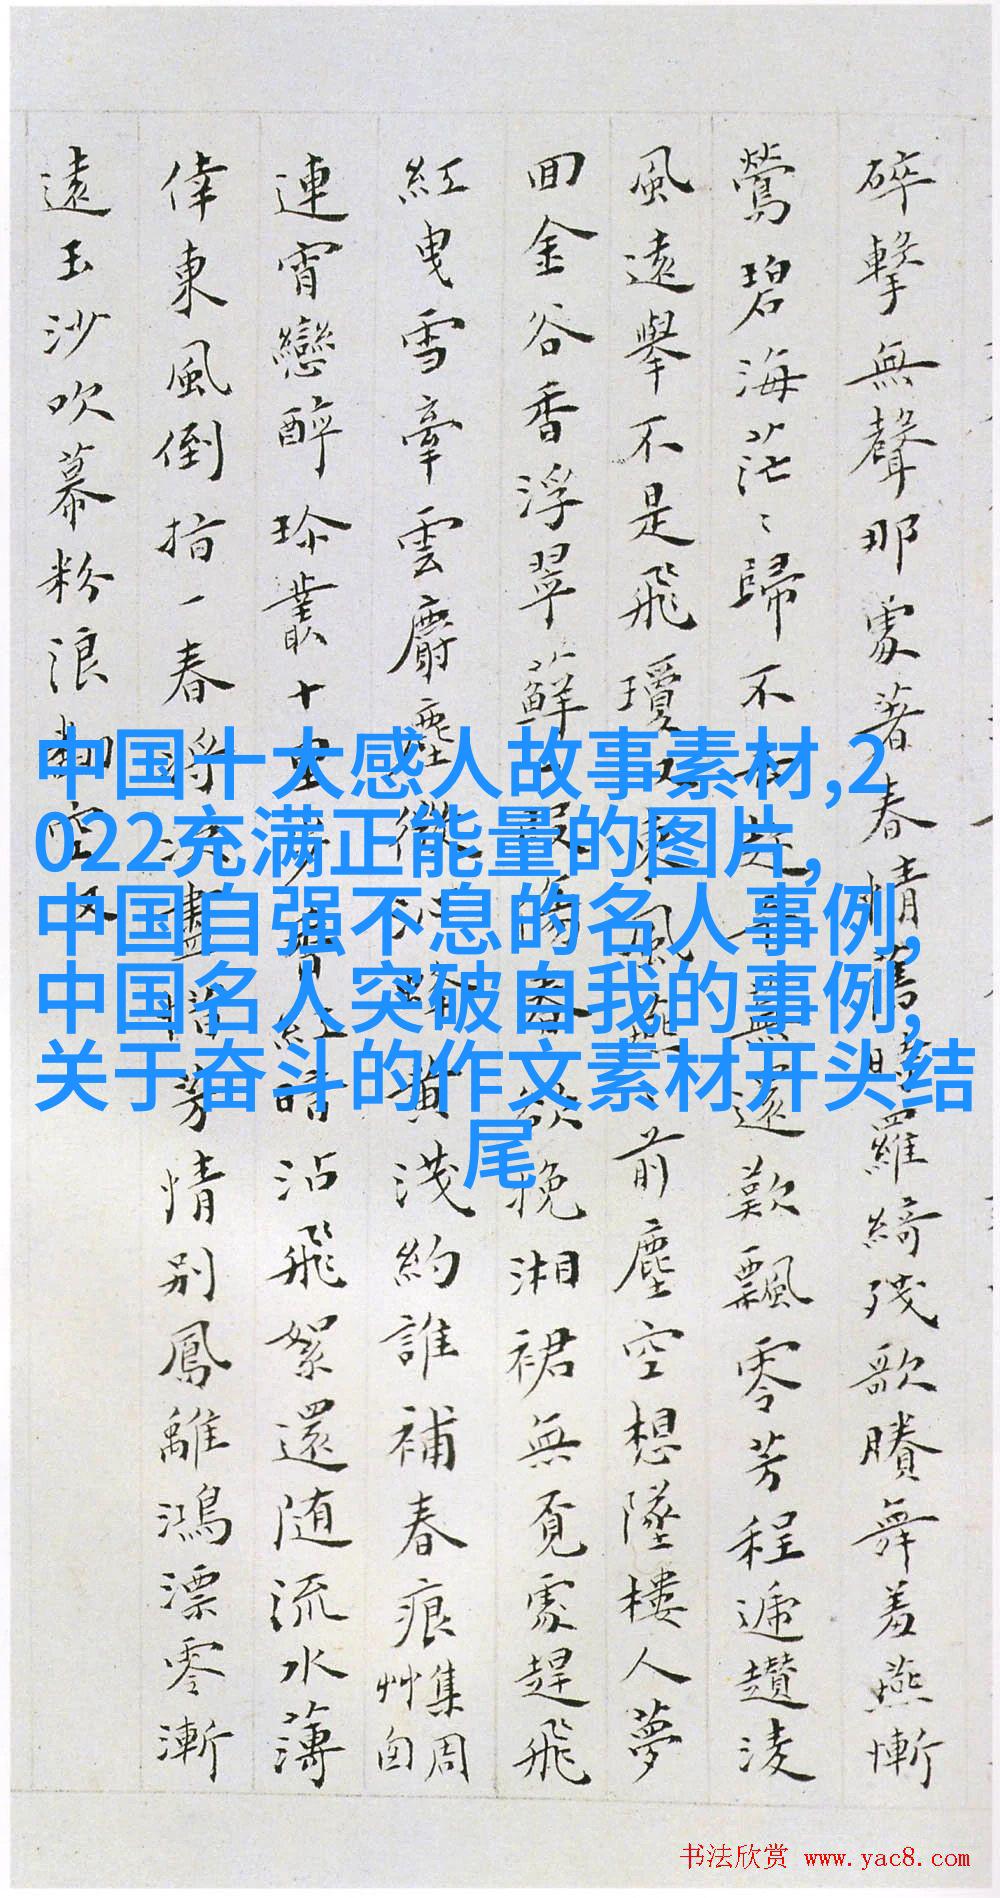 碎擊無聲那處著春情舊
羅綺殘歌賸舞羞燕慚
鶯碧海茫〻歸不
遂歎飄零芳程遞趲淩
風遠舉不是飛瓊
東風
前塵空想墜樓人夢
回金谷香浮翠蘚
欲挽湘裙無覓處趕飛
紅曳雪牽雲麝塵
黄淺約誰補春痕集周
艸窗
連宵戀醉珍叢十里
沾飛絮還随流水薄
倖東風倒指一春將
盡惜芳情別鳳離鴻漂零漸
遠玉沙吹幕粉浪翻空
中国十大感人故事素材,2
022充满正能量的图片,
中国自强不息的名人事例,
中国名人突破自我的事例,
关于奋斗的作文素材开头结
尾
书法欣赏 www.yac8.com